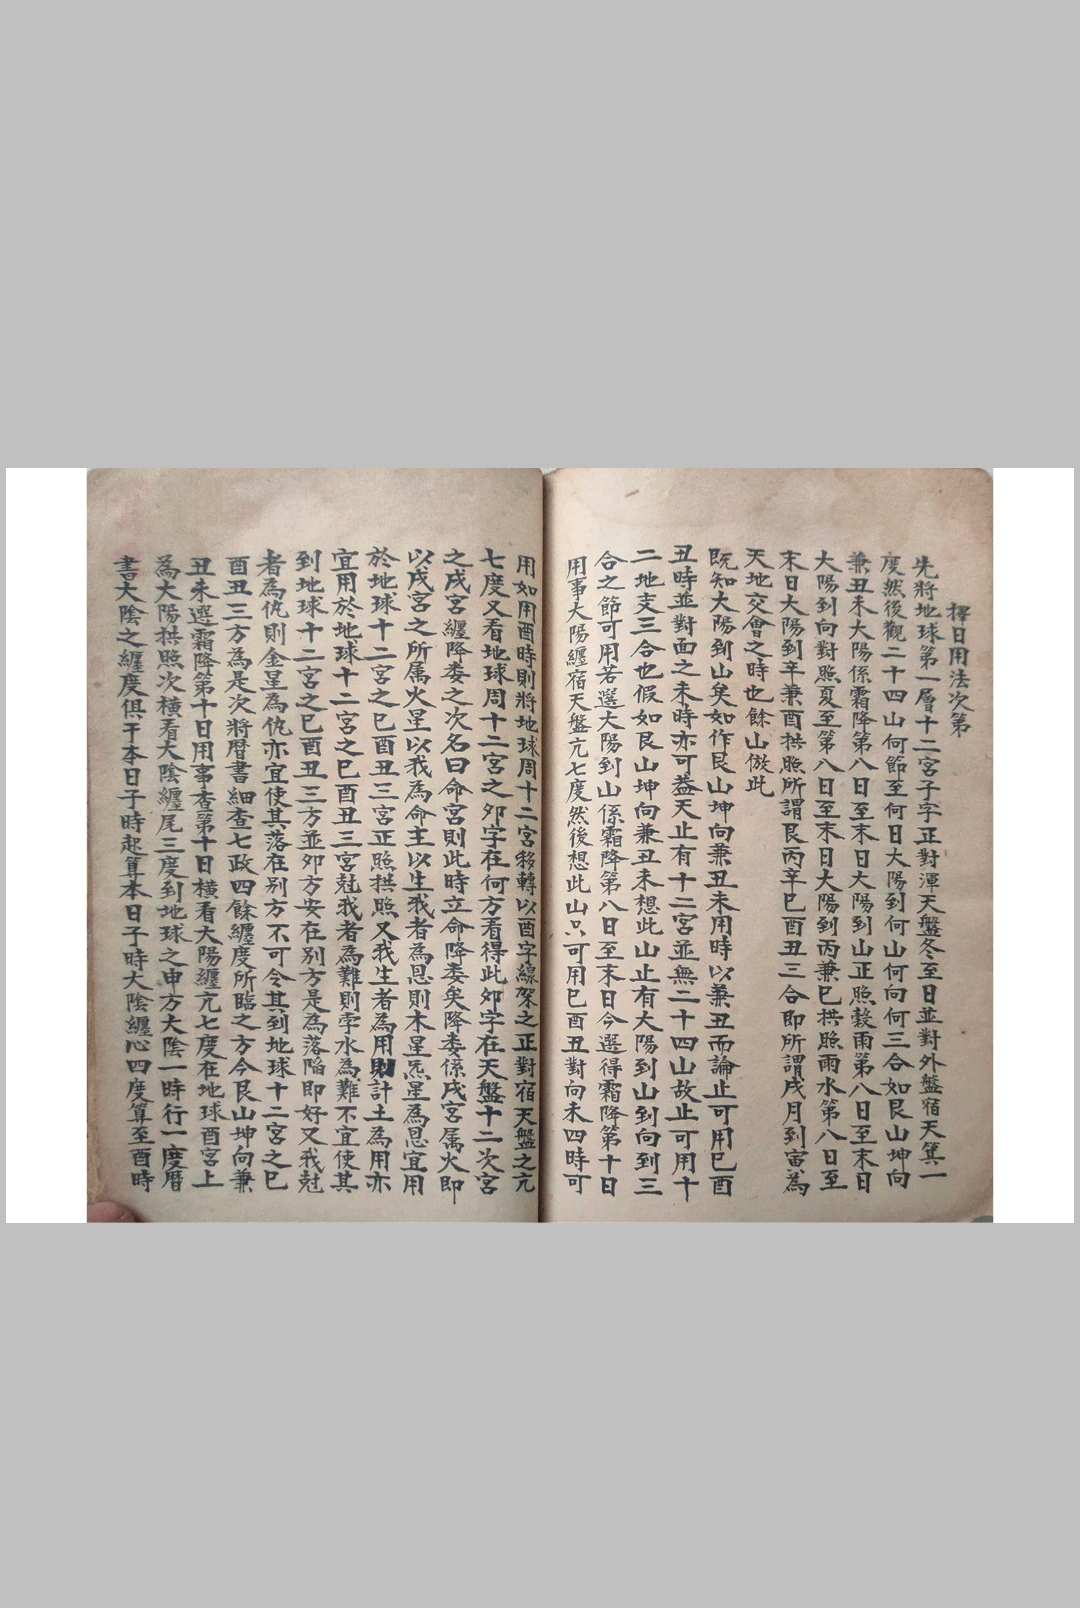 擇日用法次第
先將地球第一層十二宮子字正對渾天盤冬至日並對外盤宿天箕一
度然後觀二十四山何節至何日大陽到何山何向何三合如艮山坤向
兼丑未大陽係霜降第八日至末日大陽到山正照穀雨第八日至末日
大陽到向對照夏至第八日至末日大陽到丙兼巳拱照雨水第八日至
末日大陽到辛兼酉拱照所謂艮丙辛巳酉丑三合即所謂戌月到寅為
天地交會之時也餘山倣此
既知大陽到山矣如作艮山坤向兼丑未用時以兼丑而論止可用巳酉
丑時並對面之未時亦可益天止有十二宮並無二十四山故止可用十
二地支三合也假如艮山坤向兼丑未想此山止有大陽到山到向到三
合之節可用若選大陽到山係霜降第八日至末日今選得霜降第十日
用事大陽纏宿天盤亢七度然後想此山只可用巳酉丑對向未四時可
用如用酉時則將地球周十二宮移轉以酉字線架之正對宿天盤之亢
七度又看地球周十二宮之夘字在何方看得此夘字在天盤十二次宮
之戌宮纏降婁之次名曰命宮則此時立命降婁矣降婁係戌宮属火即
以戌宮之所属火星以我為命主以生我者為恩則木星炁星為恩宜用
於地球十二宮之巳酉丑三宮正照拱照又我生者為用則計土為用亦
宜用於地球十二宮之巳酉丑三宮尅我者為難則孛水為難不宜使其
到地球十二宮之巳酉丑三方並夘方安在别方是為落陷即好又我尅
者為仇則金星為仇亦宜使其落在别方不可令其到地球十二宮之巳
酉丑三方為是次將暦書細查七政四餘纏度所臨之方今艮山坤向兼
丑未選霜降第十日用事查第十日横看大陽纏亢七度在地球酉宮上
為大陽拱照次横看大陰纏尾三度到地球之申方大陰一時行一度暦
書大陰之纏度俱干本日子時起算本日子時大陰纏心四度算至酉時